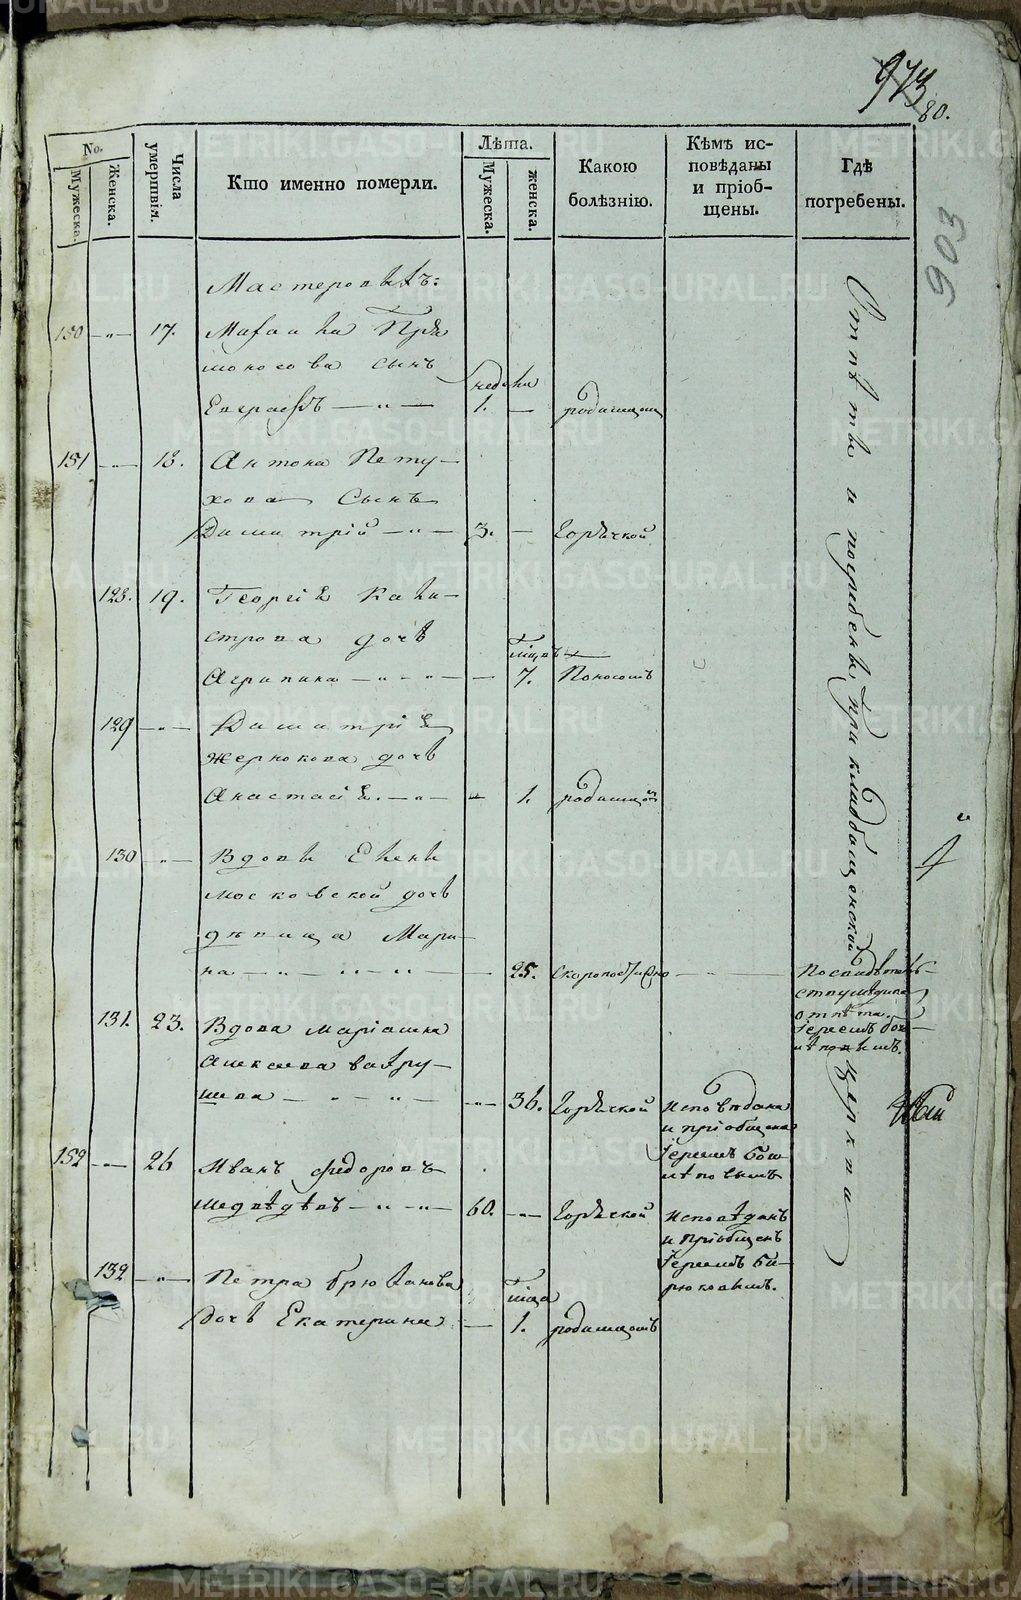 973
80.
903
No.
Мужеска.
Женска.
Числа умершвія.
Кто именно померли.
Лѣта.
Мужеска.
женска.
Какою болѣзнію.
Кѣмъ исповѣданы и пріобщены.
Гдѣ погребены.
Мастеровыхъ:
150 —"— 17.
сынъ
недѣли
1. —
151 —"— 18. Антона Пету-
хова Сынъ
Димитрій —"— 3. — Горячкой
128. 19. Георгія Кали-
строва дочь
Агрипина —"—"— — 7. Поносомъ
129 —"— Димитрія
Жернокова дочь
Анастасія. —"— 1. родимцомъ
130 —"— Вдовы Елены
Московской дочь
дѣвица Мари-
на —"—"— 25. скоропостижно —
131. 23. Вдова Маріамна
Алексѣева Вахру-
шева —"—"— 36. Горячкой Исповѣдана
и пріобщена
Іереемъ
152 —"— 26 Иванъ Федоровъ
Медвѣдевъ —"—"— 60. —"— Горячкой Исповѣданъ
и пріобщенъ
Іереемъ Би-
рюковымъ.
132 —"— Петра Брюханова
Дочь Екатерина — 1. родимцомъ
Отпѣты и погребены при кладбищенской церкви
отпѣта.
Іереемъ